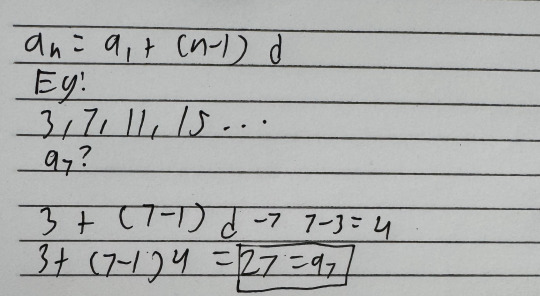 aₙ = a₁ + (n-1) d
Eg:
3, 7, 11, 15 ...
a₇?
3 + (7-1) d → 7-3 = 4
3 + (7-1) 4 = 27 = a₇